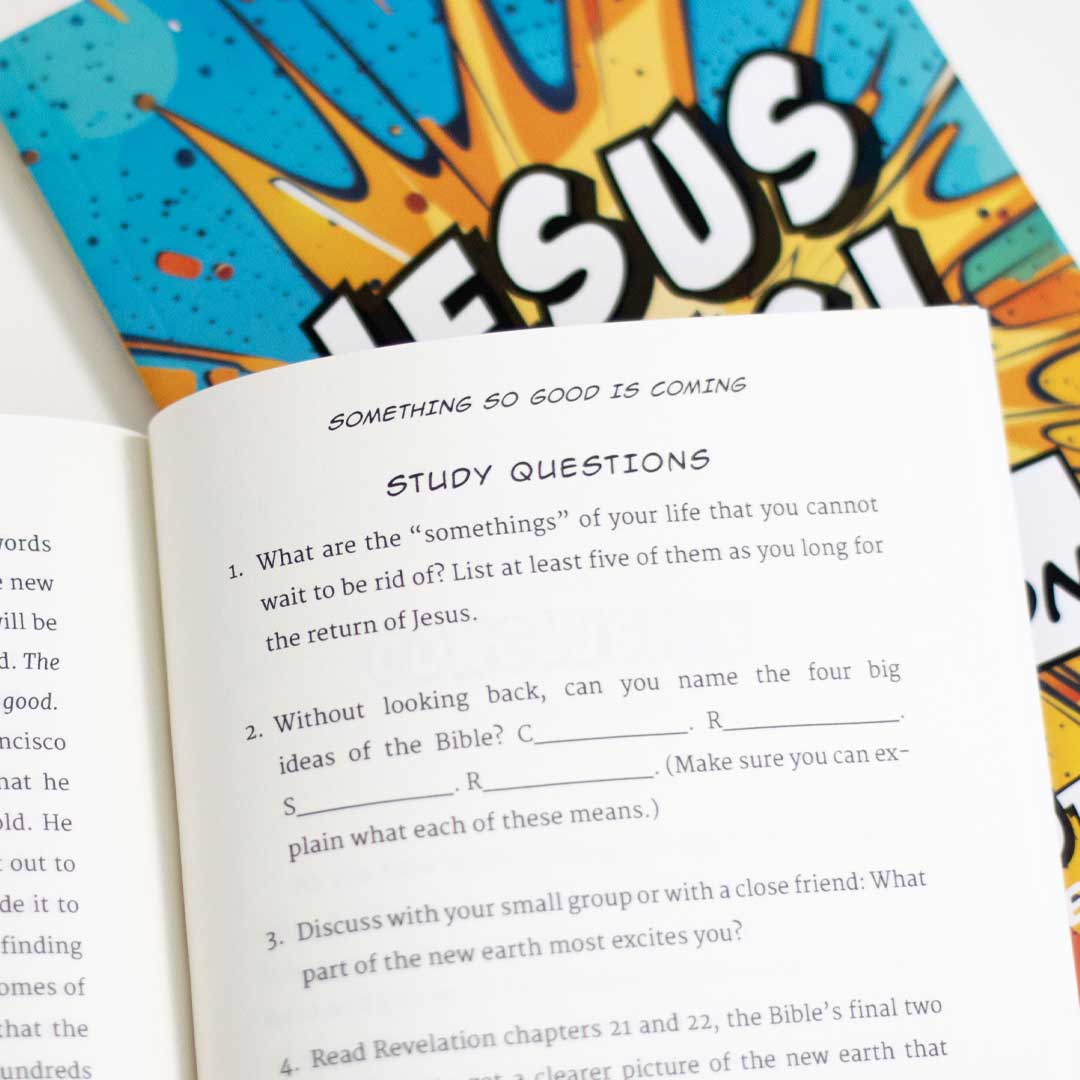 JESUS
SOMETHING SO GOOD IS COMING
STUDY QUESTIONS
1. What are the “somethings” of your life that you cannot
wait to be rid of? List at least five of them as you long for
the return of Jesus.
2. Without looking back, can you name the four big
ideas of the Bible? C____________. R______________.
S____________. R______________. (Make sure you can ex-
plain what each of these means.)
3. Discuss with your small group or with a close friend: What
part of the new earth most excites you?
4. Read Revelation chapters 21 and 22, the Bible’s final two
a clearer picture of the new earth that
new
be
The
good.
he
He
out to
it to
finding
of
that the